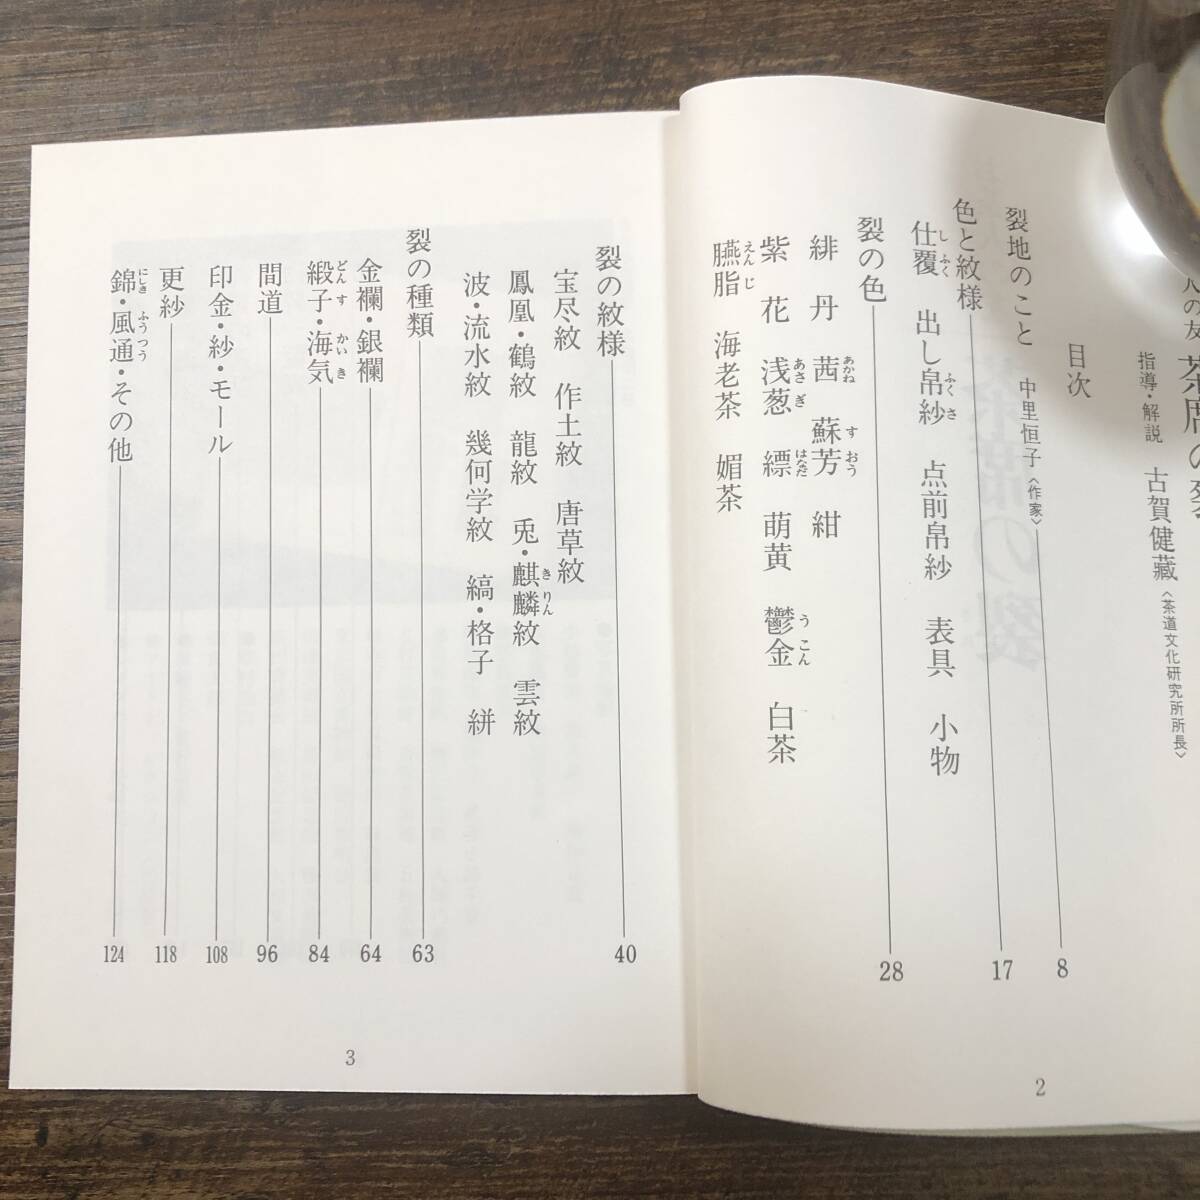 茶席の裂
指導・解説 古賀健藏〈茶道文化研究所所長〉
目次
裂地のこと 中里恒子〈作家〉 8
色と紋様 17
仕覆 出し帛紗 点前帛紗 表具 小物
しふく ふくさ
裂の色 28
緋 丹 茜 蘇芳 紺
あかね すおう
紫 花 浅葱 縹 萌黄 鬱金 白茶
あさぎ はなだ うこん
臙脂 海老茶 媚茶
えんじ
2
裂の紋様 40
宝尽紋 作土紋 唐草紋
鳳凰・鶴紋 龍紋 兎・麒麟紋 雲紋
きりん
波・流水紋 幾何学紋 縞・格子 絣
裂の種類 63
金襴・銀襴 64
緞子・海気 84
どんす かいき
間道 96
印金・紗・モール 108
更紗 118
錦・風通・その他 124
にしき ふうつう
3